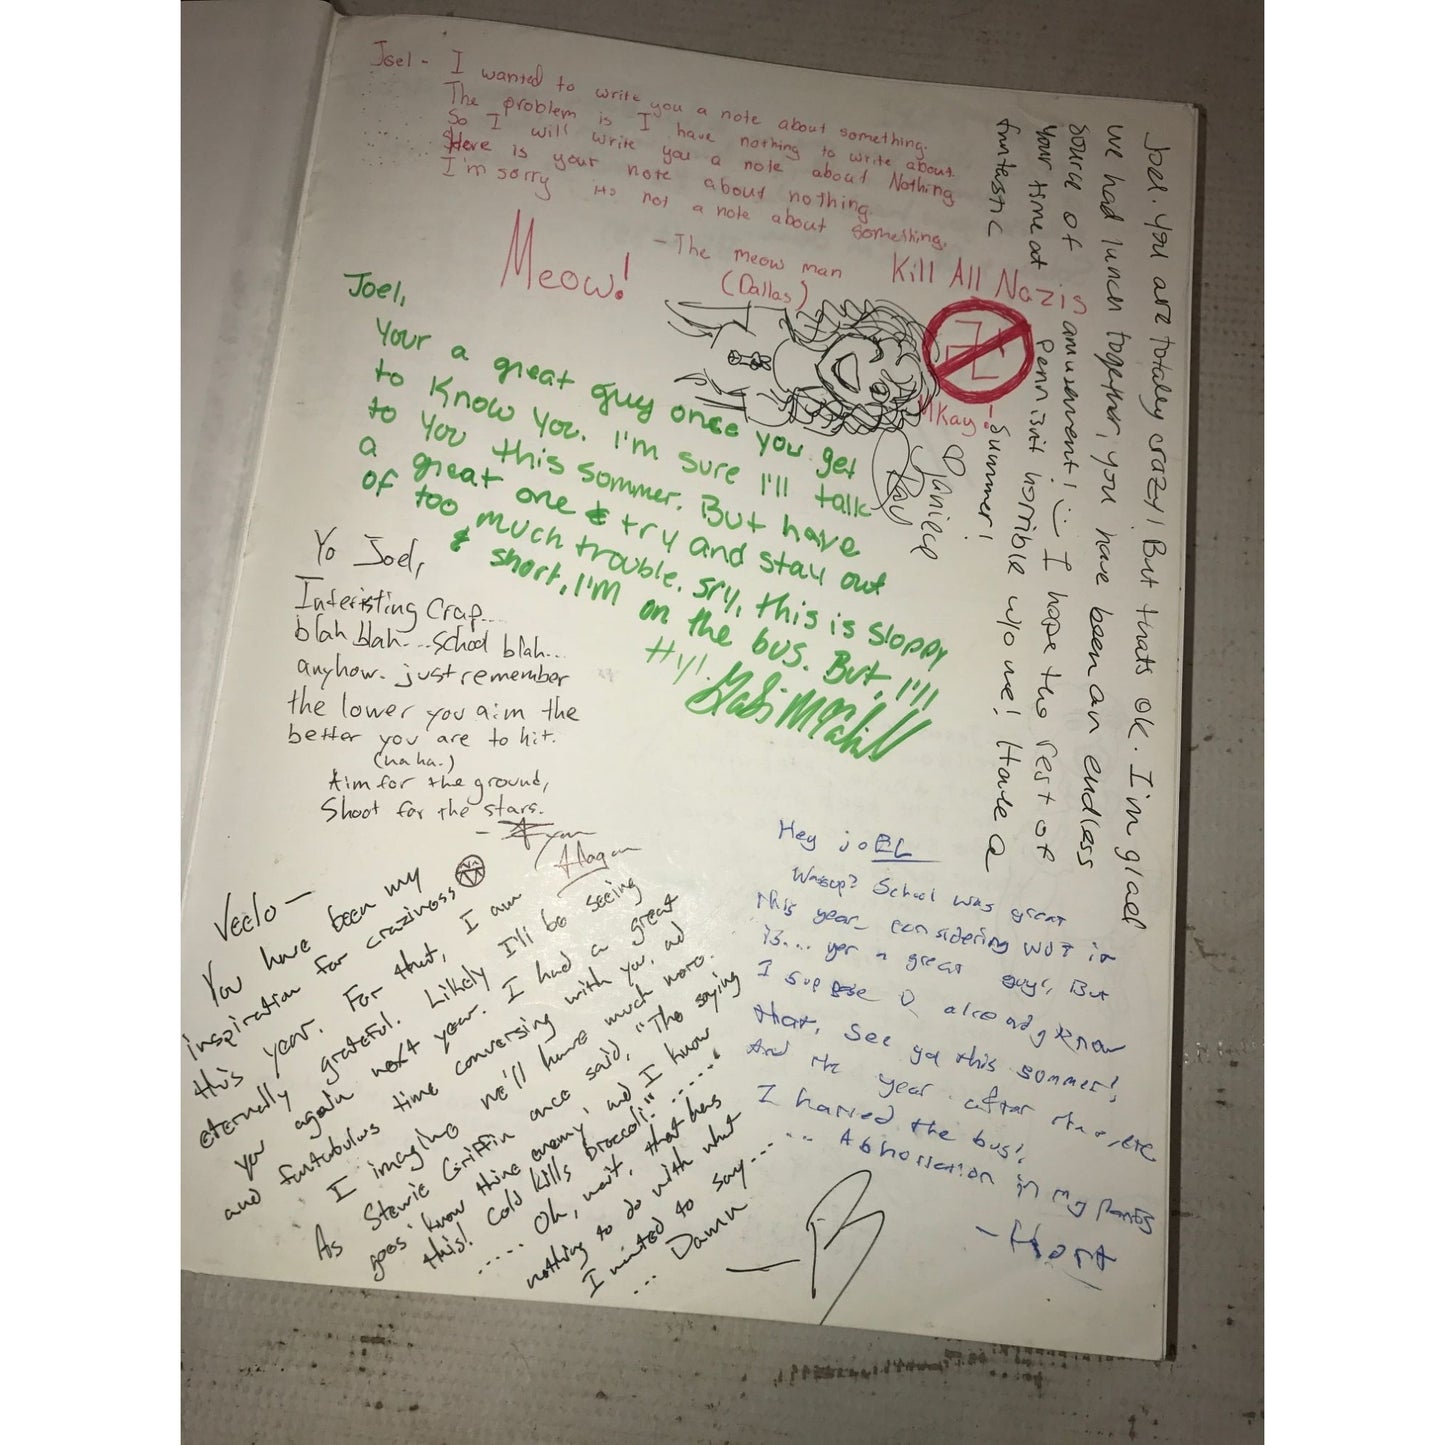 Joel - I wanted to write you a note about something.
The problem is I have nothing to write about.
So I will write you a note about Nothing
Here is your note about nothing.
I'm sorry its not a note about something.
- The meow man
(Dallas)
Meow!
Kill All Nazis
MKay!
Joel. You are totally crazy! But thats ok. I'm glad
we had lunch together, you have been an endless
source of amusement! I hope the rest of
your time at Penn isnt horrible w/o me! Have a
funtastic summer!
Joel,
Your a great guy once you get
to know you. I'm sure I'll talk
to you this sommer. But have
a great one & try and stay out
of too much trouble. Sry, this is sloppy
& short, I'm on the bus. But, I'll
ttyl.
Yo Joel,
Interisting Crap...
blah blah...school blah...
anyhow. just remember
the lower you aim the
better you are to hit.
(haha.)
Aim for the ground,
Shoot for the stars.
Veelo -
You have been my
inspiration for craziness
this year. For that, I am
eternally grateful. Likely I'll be seeing
you again next year. I had a great
and funtubulus time conversing with you, ad
I imagine we'll have much more.
As Stewie Griffin once said, "The saying
goes 'know thine enemy', and I know
this! Cold kills broccoli."......
..... Oh, wait, that has
nothing to do with what
I wanted to say.....
... Damn
Hey joEL
Wassup? School was great
this year, considering WUT it
is... yer a great guy, But
I suppose U already know
that, see ya this summer!
And the year after that, etc
I hatred the bus!
...